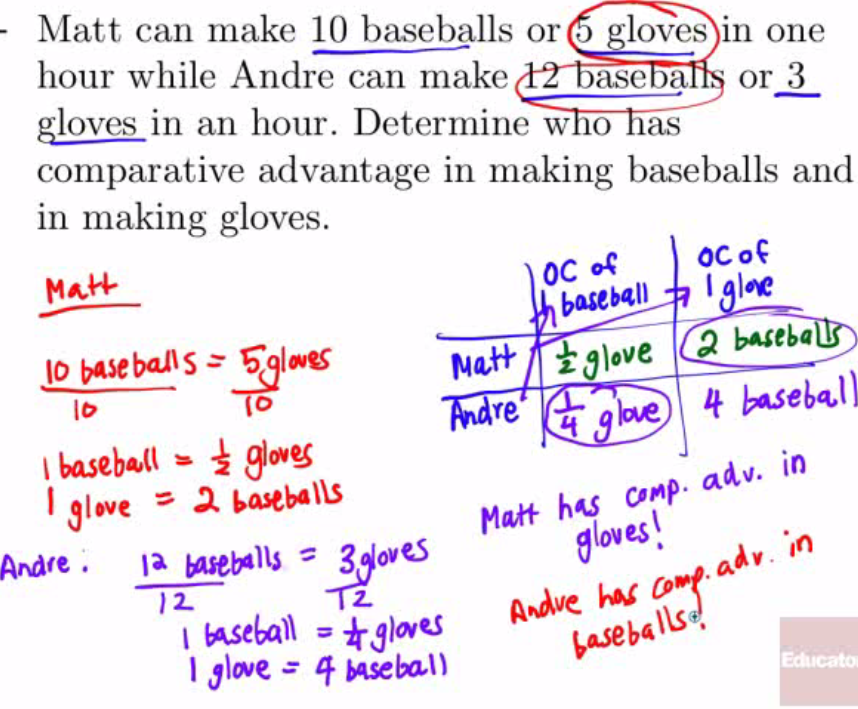 - Matt can make 10 baseballs or 5 gloves in one
hour while Andre can make 12 baseballs or 3
gloves in an hour. Determine who has
comparative advantage in making baseballs and
in making gloves.
Matt
10 baseballs = 5 gloves
10 10
1 baseball = 1/2 gloves
1 glove = 2 baseballs
Andre: 12 baseballs = 3 gloves
12 12
1 baseball = 1/4 gloves
1 glove = 4 baseball
OC of OC of
1 baseball 1 glove
Matt 1/2 glove 2 baseballs
Andre 1/4 glove 4 baseball
Matt has comp. adv. in
gloves!
Andre has comp. adv. in
baseballs!
Educato